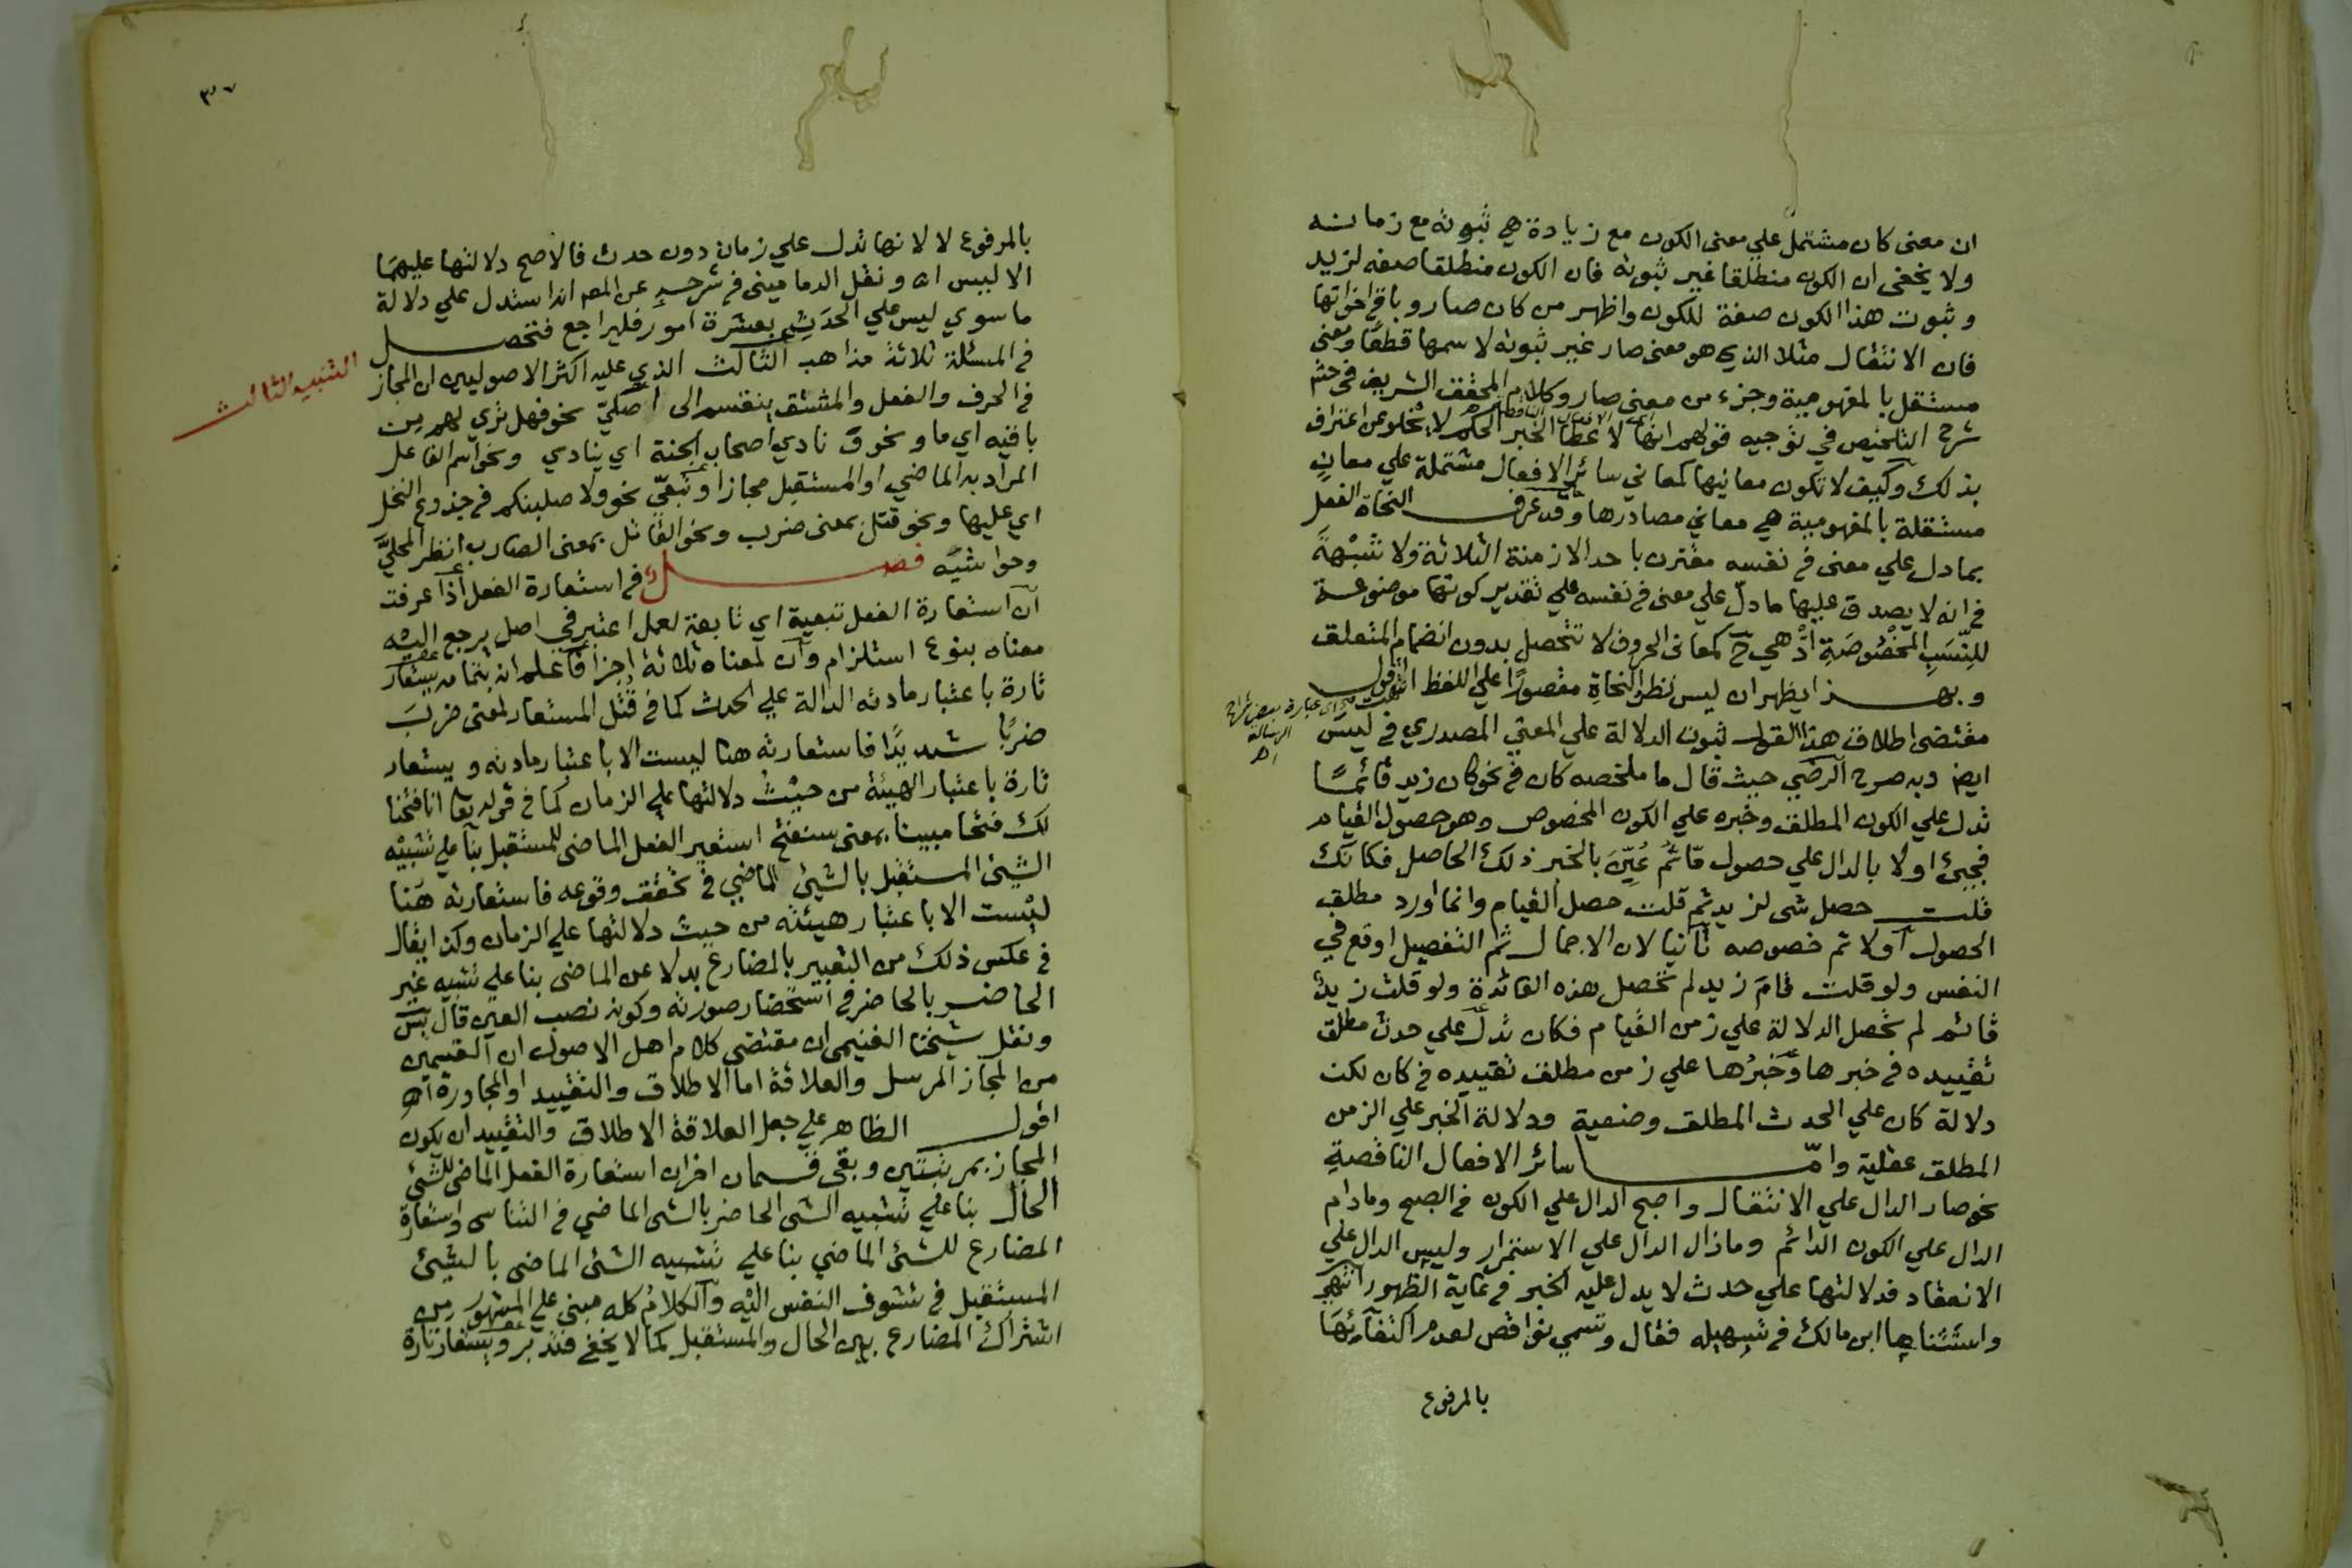 ان معنى كان مشتمل علي معنى الكون مع زيادة هي ثبوته مع زمانه
ولا يخفى ان الكون منطلقا غير ثبوته فان الكون منطلقا صفه لزيد
وثبوت هذا الكون صفة للكون واظهر من كان صار وباقي اخواتها
فان الانتقال مثلا الذي هو معنى صار غير ثبوته لاسمها قطعًا ومعنى
مستقل بالمفهومية وجزء من معنى صار وكلام المحقق الشريف في
شرح التلخيص في توجيه قولهم انها لاعطا الخبر الحكم لا يخلو عن اعتراف
بذلك وكيف لا تكون معانيها كمعاني سائر الافعال مشتملة علي معانٍ
مستقلة بالمفهومية هي معاني مصادرها وقد عرف النحاة الفعل
بما دل علي معنى في نفسه مقترن باحد الازمنة الثلاثة ولا شبْهةَ
في انه لا يصدق عليها ما دلّ علي معنى في نفسه علي تقدير كونها موضوعة
للنِّسَبِ المخْصُوصَةِ اذْ هي ح كمعانى الحروف لا تتحصل بدون انضمام المتعلق
وبهذا يظهر ان ليس نظر النحاةِ مقصورًا علي اللفظ اقول
انتهت عبارة بعض شراح
الرسالة
اه
مقتضى اطلاق هذا القول ثبوت الدلالة علي المعنى المصدري في ليس
ايض وبه صرح الرضي حيث قال ما ملخصه كان في نحو كان زيد قائمًا
تدل علي الكون المطلق وخبره علي الكون المخصوص وهو حصول القيام
فجيئ اولا بالدال علي حصول مّا ثم عُيِّنَ بالخبر ذلك الحاصل فكانك
قلت حصل شى لزيد ثم قلت حصل القيام وانما اورد مطلق
الحصول اولا ثم خصوصه ثانيا لان الاجمال ثم التفصيل اوقع في
النفس ولو قلت قامَ زيد لم تحصل هذه الفائدة ولو قلت زيدٌ
قائم لم تحصل الدلالة علي زمن القيام فكان تدلّ علي حدث مطلق
تقييده في خبرها وخَبرُها علي زمن مطلق تقييده في كان لكن
دلالة كان علي الحدث المطلق وضعية ودلالة الخبر علي الزمن
المطلق عقلية وامّا سائر الافعال الناقصةِ
نحو صار الدال علي الانتقال واصبح الدال علي الكون في الصبح ومادام
الدال علي الكون الدائم ومازال الدال علي الاستمرار وليس الدال علي
الانعقاد فدلالتها علي حدث لا يدل عليه الخبر في غاية الظهور انتهي
واستثناها ابن مالك في تسهيله فقال وتسمي نواقص لعدم اكتفائها
بالمرفوع
٣٧
بالمرفوع لا لانها تدل علي زمان دون حدث فالاصح دلالتها عليهما
الا ليس اه ونقل الدماميني في شرحه عن المص انه استدل علي دلالة
ما سوي ليس علي الحدَثِ بعشرة امور فليراجع فتحصل
في المسئلة ثلاثة مذاهب الثالث الذي عليه اكثر الاصوليين ان المجاز
التنبيه الثالث
في الحرف والفعل والمشتق ينقسم الى اصليّ نحو فهل تري لهم من
باقيه اي ما ونحو نادي اصحاب الجنة اي ينادي ونحو اسم الفاعل
المراد به الماضي او المستقبل مجازا وتبعيّ نحو ولاصلبنكم في جذوع النخل
اي عليها ونحو قتل بمعنى ضرب ونحو القاتل بمعنى الضارب انظر المحليَّ
وحواشيَه فصل في استعارة الفعل اذا عرفت
ان استعارة الفعل تبعية اي تابعة لعمل اعتبر في اصل يرجع اليه
معناه بنوع استلزام وان لمعناه ثلاثة اجزا فاعلم انه بتمامه يستعار
تارة باعتبار مادته الدالة علي الحدث كما في قُتل المستعار لمعنى ضربَ
ضربًا شديدًا فاستعارته هنا ليست الا باعتبار مادته ويستعار
تارة باعتبار الهيئة من حيْثُ دلالتها علي الزمان كما في قوله تعا انا فتحنا
لك فتحا مبينا بمعنى سنفتح استعير الفعل الماضى للمستقبل بنا علي تشبيْه
الشيئ المستقبل بالشيئ الماضي في تحقق وقوعه فاستعارته هَنا
ليْست الا باعتبار هيئته من حيث دلالتها علي الزمان وكذا يقال
في عكس ذلك من التعبير بالمضارع بدلا عن الماضى بنا علي تشبيه غير
الحاضر بالحاضر في استحضار صورته وكونه نصب العين قال يس
ونقل شيخنا الغنيمى ان مقتضى كلام اهل الاصول ان القسمين
من المجاز المرسل والعلاقة اما الاطلاق والتقييد او المجاورة اه
اقول الظاهر علي جعل العلاقة الاطلاق والتقييد ان يكون
المجاز بمرتبتين وبقى قسمان اخران استعارة الفعل الماضى للشئ
الحال بنا علي تشبيه الشى الحاضر بالشى الماضي في التناسى واستعارة
المضارع للشئ الماضي بنا علي تشبيه الشئ الماضى بالشيئ
المستقبل في تشوف النفس اليْه والكلامُ كله مبنى علي المشهور من
اشتراك المضارع بين الحال والمستقبل كما لا يخفى فتدبر ويستعار تارة